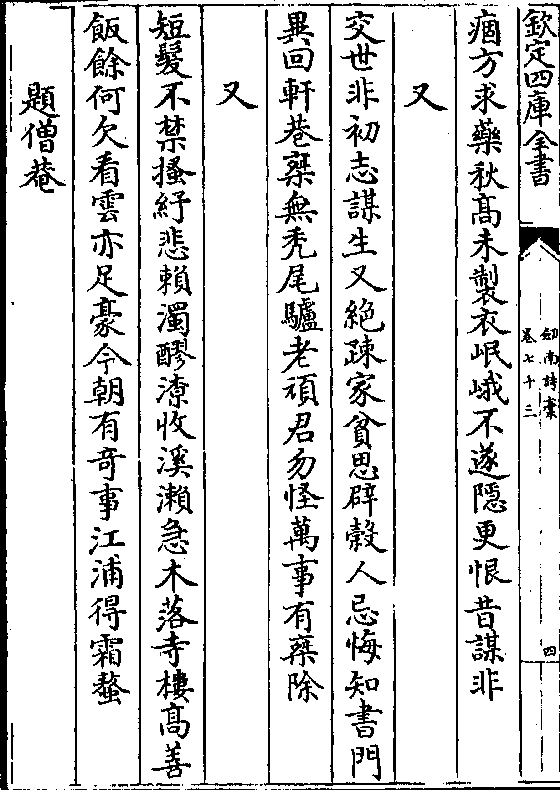 欽定四庫全書
劔南詩藁
卷七十三
四
痼方求藥秋髙未製衣岷峨不遂隱更恨昔謀非
又
交世非初志謀生又絶踈家貧思辟榖人忌悔知書門
異回軒巷槖無秃尾驢老頑君勿怪萬事有乗除
又
短髮不禁搔紓悲賴濁醪潦收溪瀨急木落寺樓髙善
飯餘何欠看雲亦足豪今朝有竒事江浦得霜螯
題僧菴